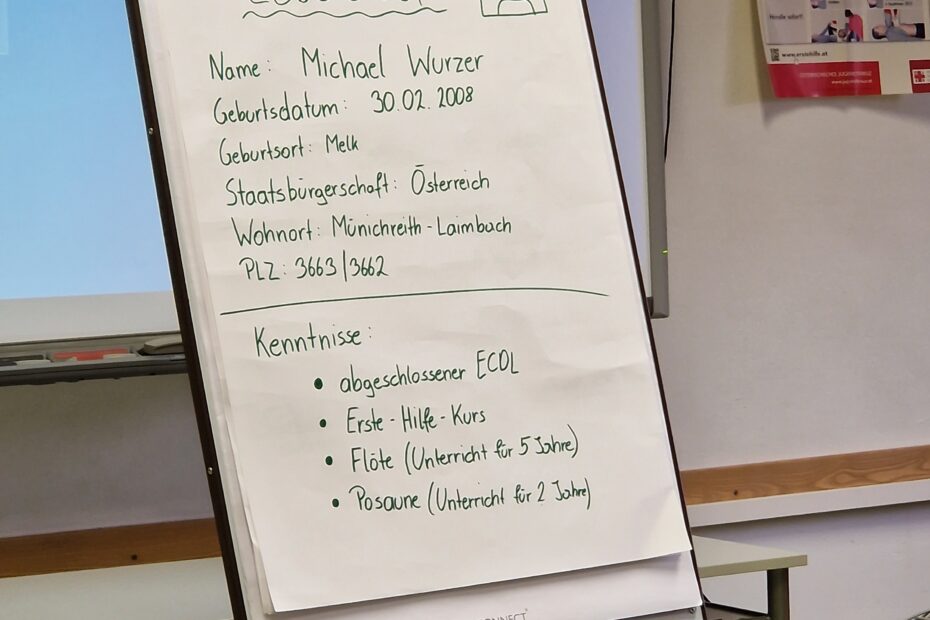 Name: Michael Wurzer
Geburtsdatum: 30.02.2008
Geburtsort: Melk
Staatsbürgerschaft: Österreich
Wohnort: Münichreith-Laimbach
PLZ: 3663/3662
Kenntnisse:
• abgeschlossener ECDL
• Erste-Hilfe-Kurs
• Flöte (Unterricht für 5 Jahre)
• Posaune (Unterricht für 2 Jahre)
www.erstehilfe.at
ÖSTERREICHISCHES JUGENDROTKREUZ